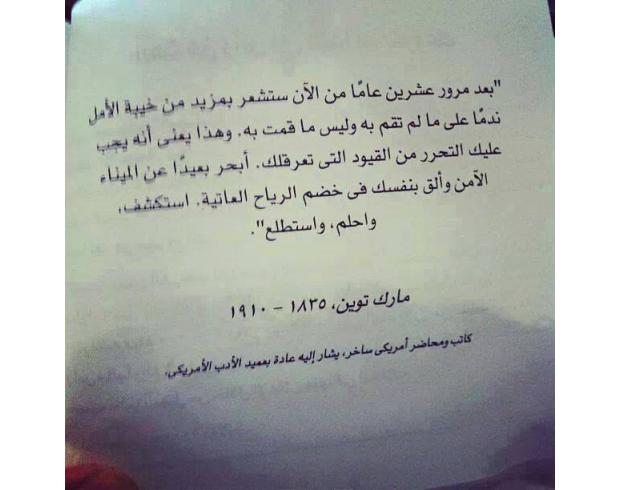 "بعد مرور عشرين عامًا من الآن ستشعر بمزيد من خيبة الأمل
ندمًا على ما لم تقم به وليس ما قمت به. وهذا يعنى أنه يجب
عليك التحرر من القيود التى تعرقلك. أبحر بعيدًا عن الميناء
الآمن وألق بنفسك فى خضم الرياح العاتية. استكشف،
واحلم، واستطلع".
مارك توين، ١٨٣٥ – ١٩١٠
كاتب ومحاضر أمريكى ساخر، يشار إليه عادة بعميد الأدب الأمريكى.